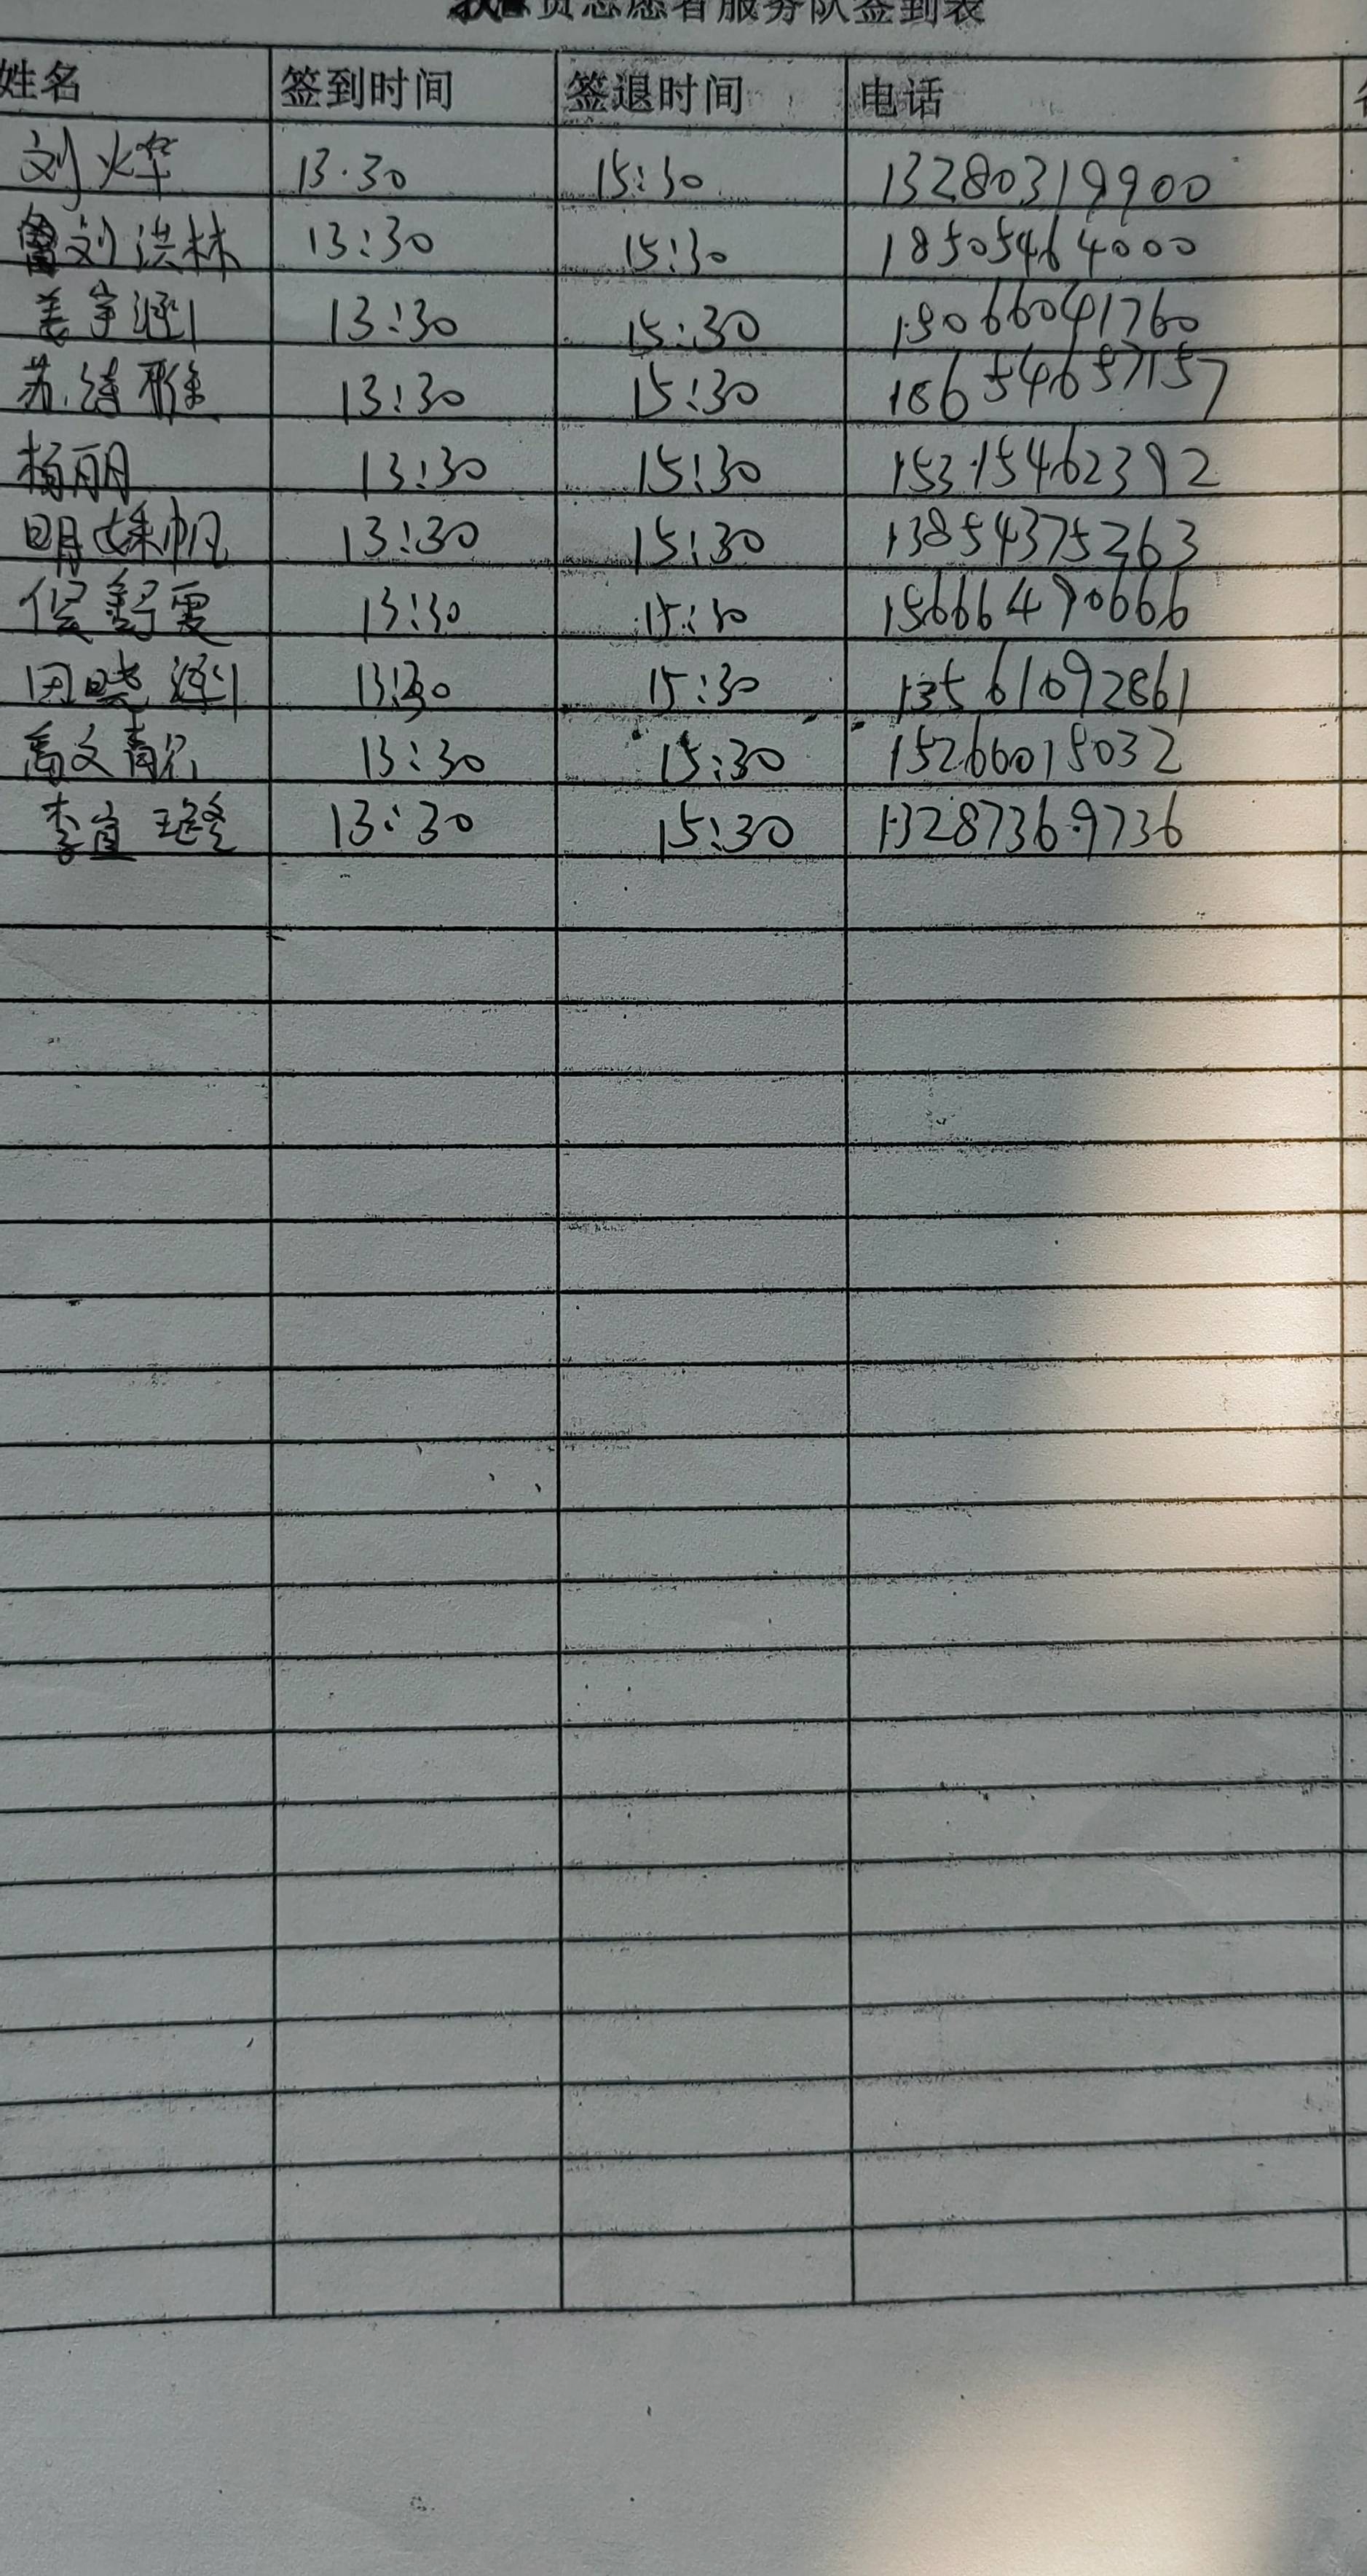 贡志愿者服务队签到表
姓名 签到时间 签退时间 电话
刘烨 13.30 15:30 13280319900
刘洪林 13:30 15:30 18505464000
姜宇涵 13:30 15:30 15:30 
苏诗雅 13:30 15:30 18654657157
杨丽 13:30 15:30 15315462392
明姝帆 13:30 15:30 13854375263
侯舒雯 13:30 15:30 15666490666
田晓涵 13:30 15:30 13561092861
高文 13:30 15:30 15266015032
李宜璐 13:30 15:30 13287369736